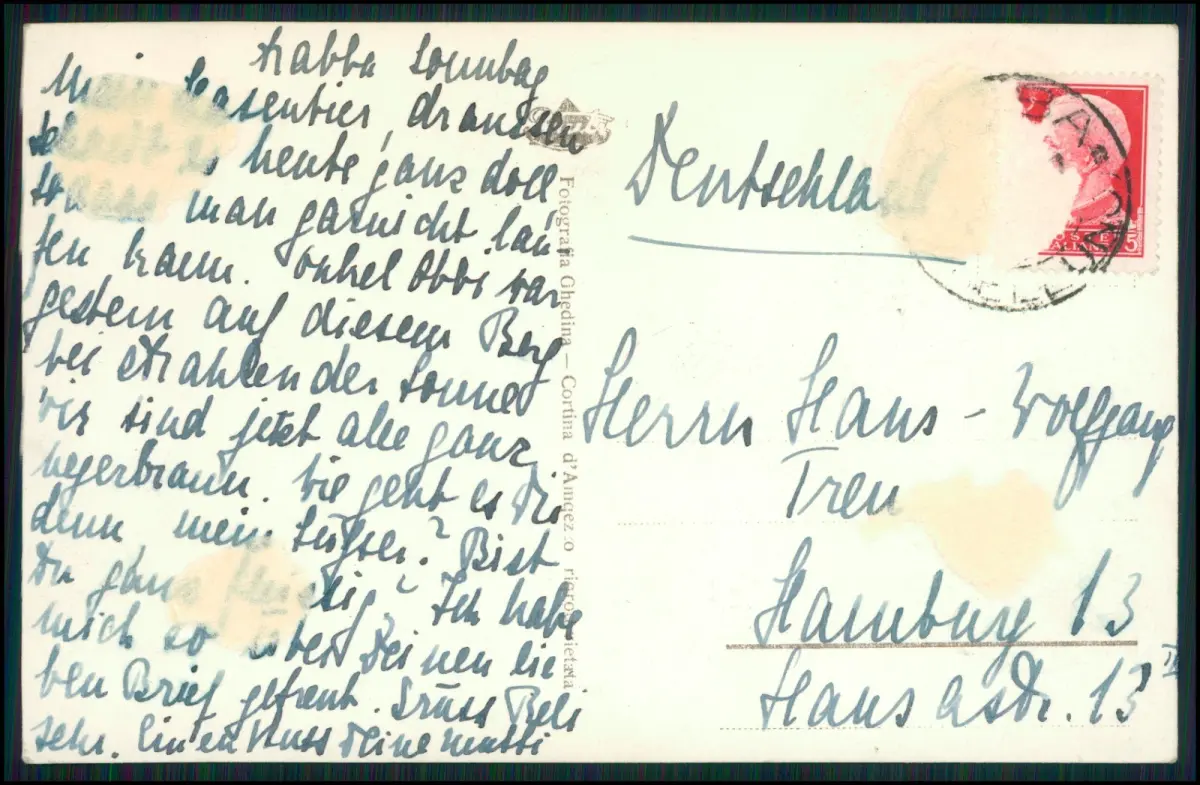 Sonntag
Mein Hasentier, draussen
schneit es heute ganz doll
sodass man garnicht lau
fen kann. Onkel Obbi war
gestern auf diesem Berg
bei strahlender Sonne
wir sind jetzt alle ganz
negerbraun. Wie geht es Dir
denn mein Süßer? Bist
Du ganz fleissig? Ich habe
mich so über Deinen lie
ben Brief gefreut. Grüss Beli
sehr. Einen Kuss Deine Mutti
Fotografia Ghedina — Cortina d'Ampezzo riproduz. vietata
Deutschland
POSTE
ITALIANE
Herrn Hans-Wolfgang
Treu
Hamburg 13
Hansastr. 13 III